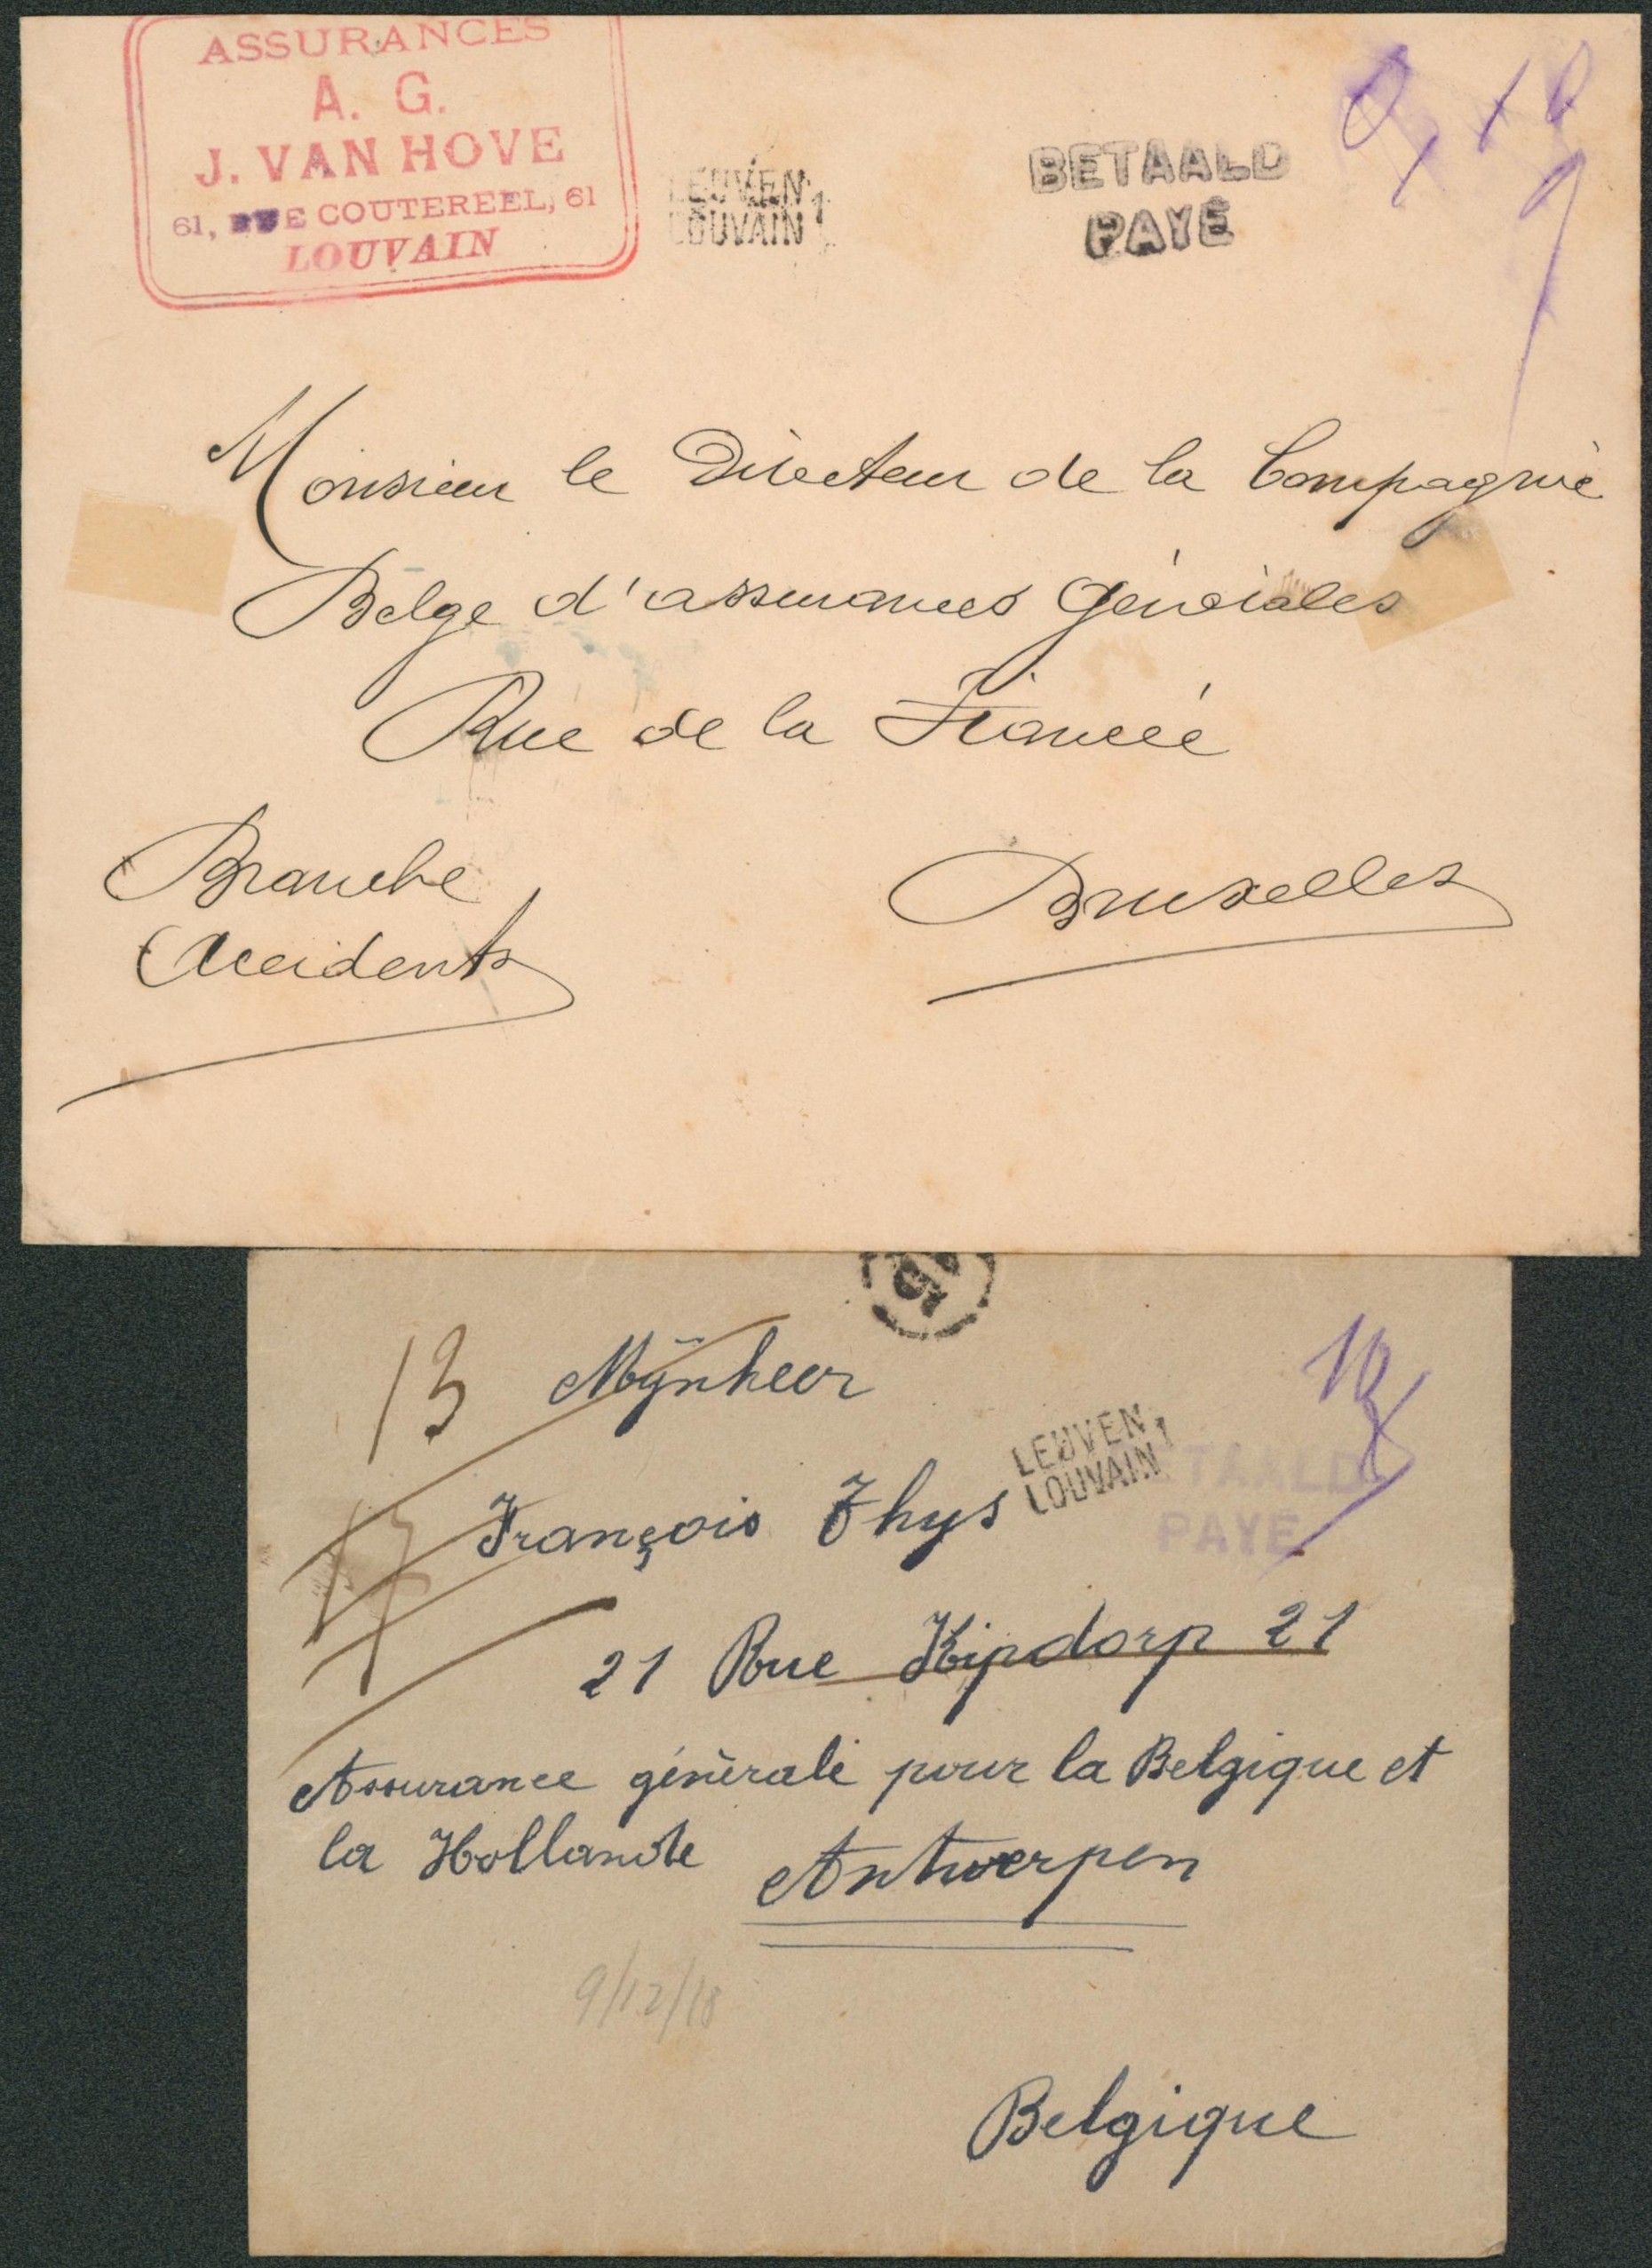 ASSURANCES
A. G.
J. VAN HOVE
61, RUE COUTEREEL, 61
LOUVAIN
LEUVEN 1
LOUVAIN
BETAALD
PAYÉ
Monsieur le Directeur de la Compagnie
Belge d'assurances Générales
Rue de la
Branche
Accidents
Bruxelles
13 Mÿnheer
LEUVEN 1
LOUVAIN
TAALD
PAYÉ
François Thys
21 Rue Kipdorp 21
Assurance générale pour la Belgique et
la Hollande Antwerpen
9/12/18
Belgique